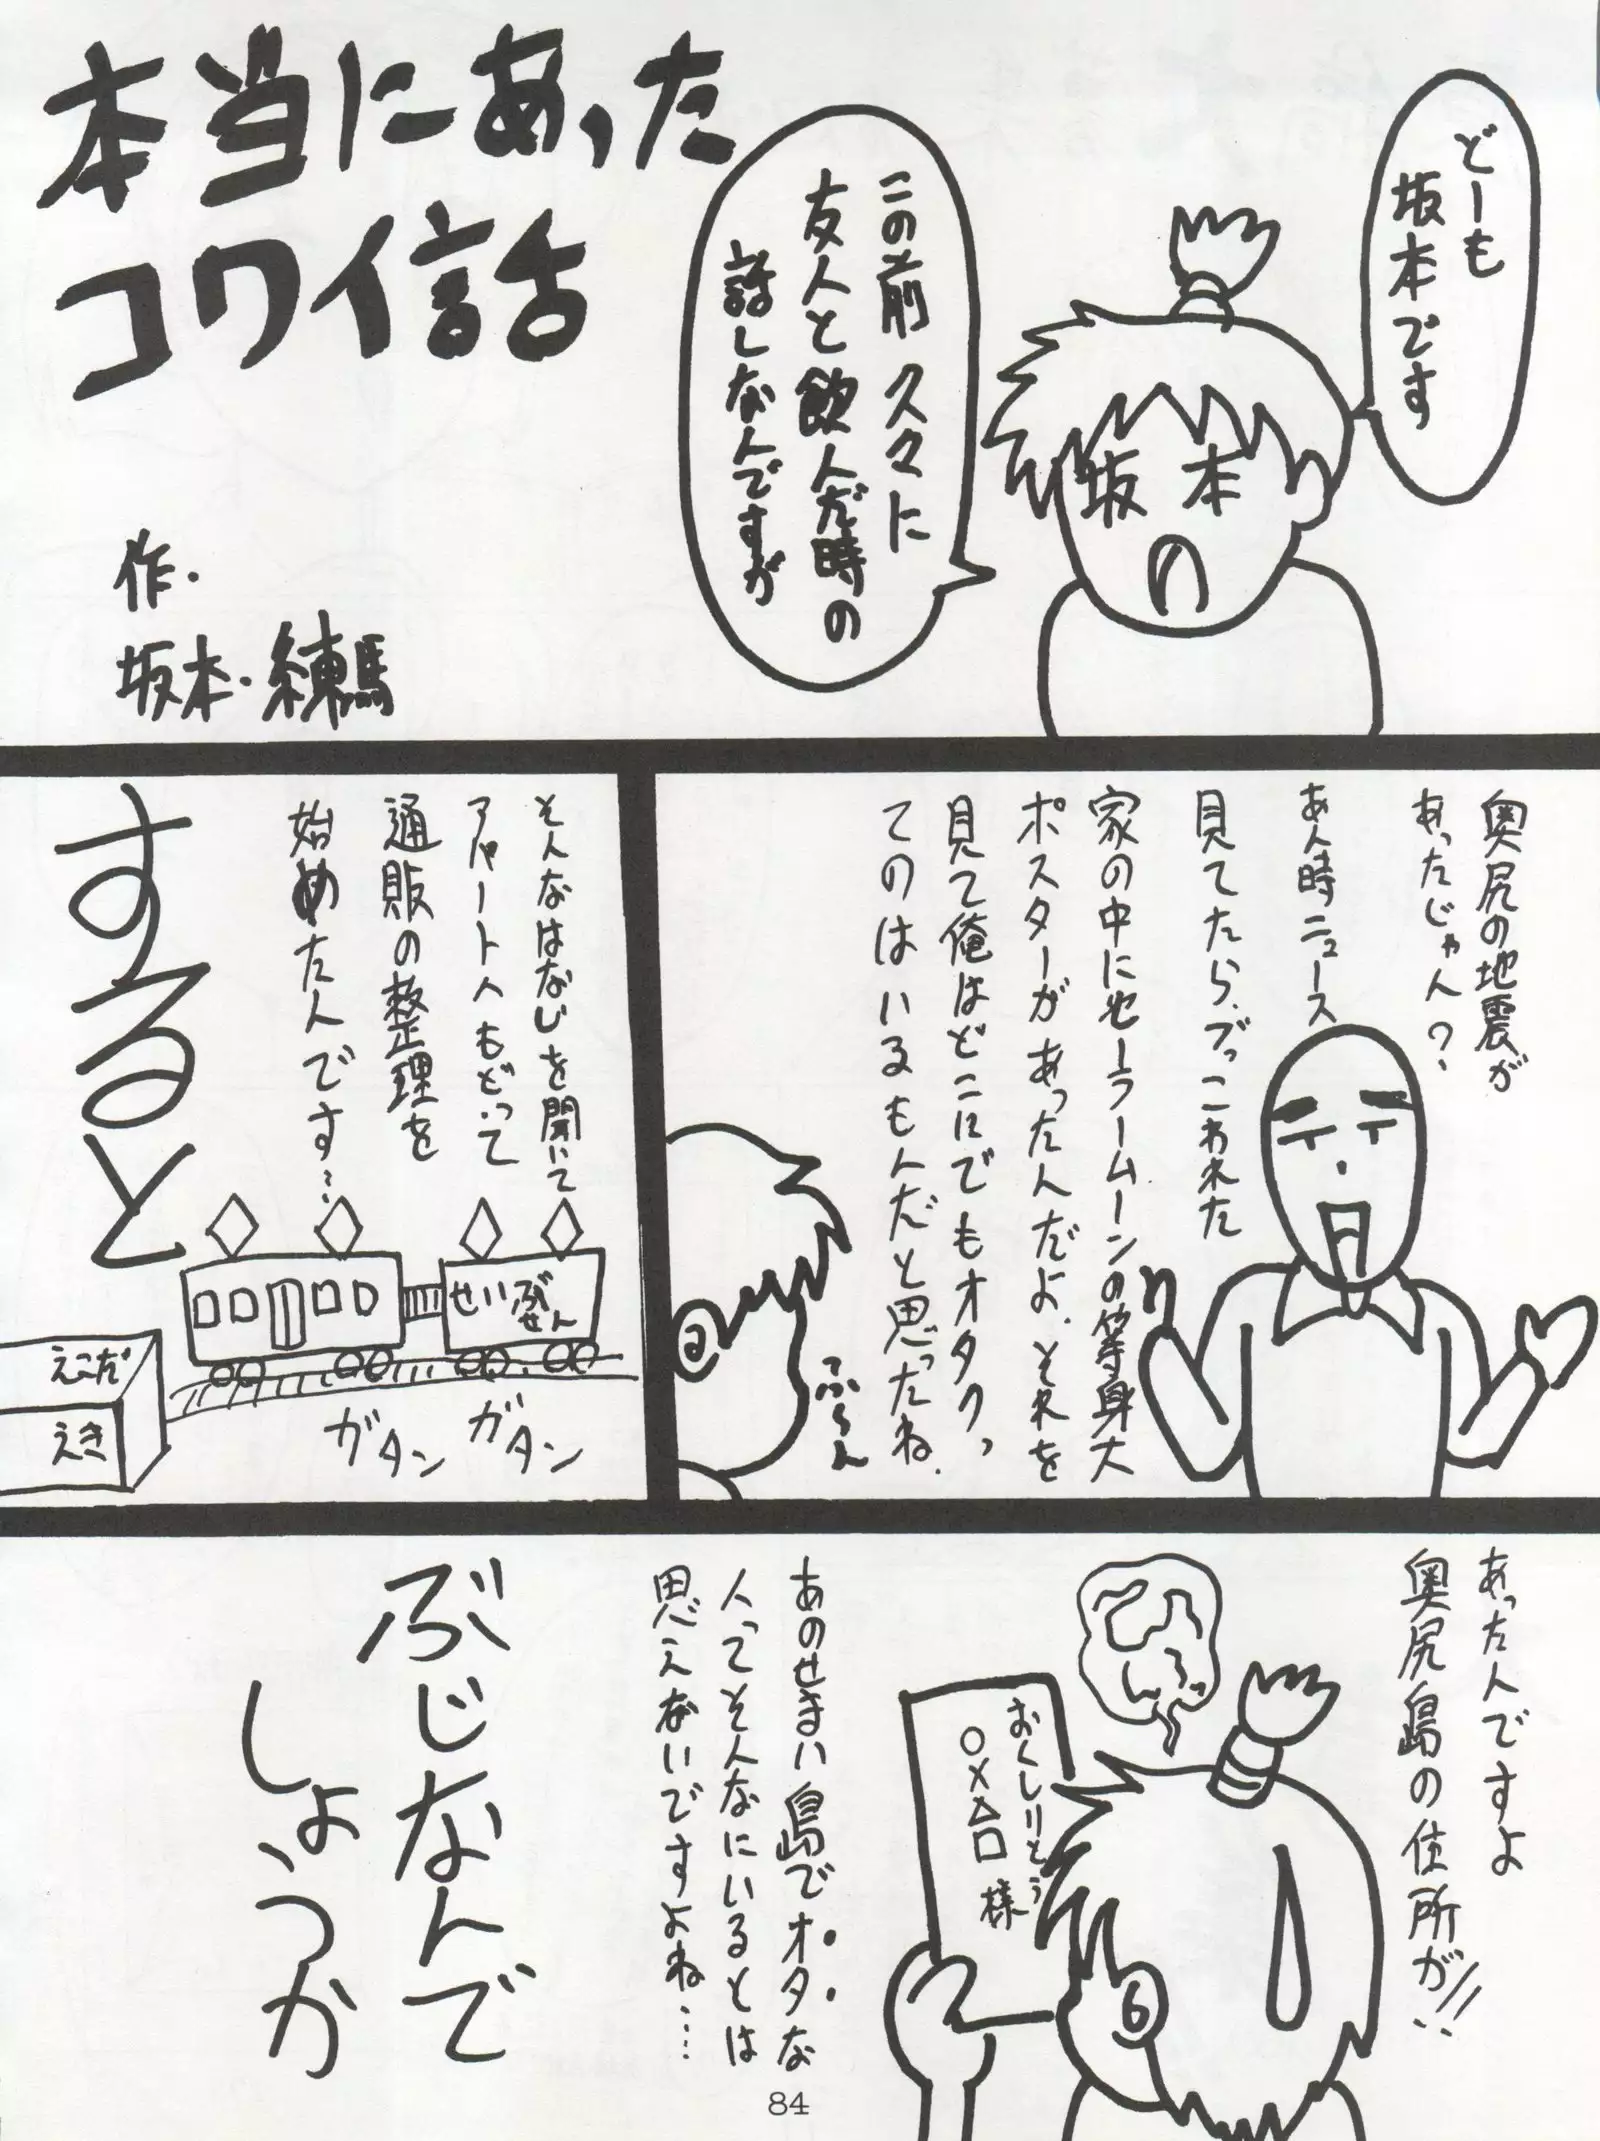 本当にあった
コワイ話
作・
坂本・練馬
どーも
坂本です
坂本
この前久々に
友人と飲んだ時の
話しなんですが
奥尻の地震が
あったじゃん?
あん時ニュース
見てたら、ブっこわれた
家の中にセーラームーンの等身大
ポスターがあったんだよ、それを
見て俺はどこにでもオタクっ
てのはいるもんだと思ったね、
ふ〜ん
そんなはなしを聞いて
アパートへもどって
通販の整理を
始めたんです…
すると
せいぶ
せん
えこだ
えき
ガタン
ガタン
あったんですよ
奥尻島の住所が!!
おくしりとう
○×△口様
あのせまい島でオ・タ・な
人ってそんなにいるとは
思えないですよね…
ぶじなんで
しょうか
84